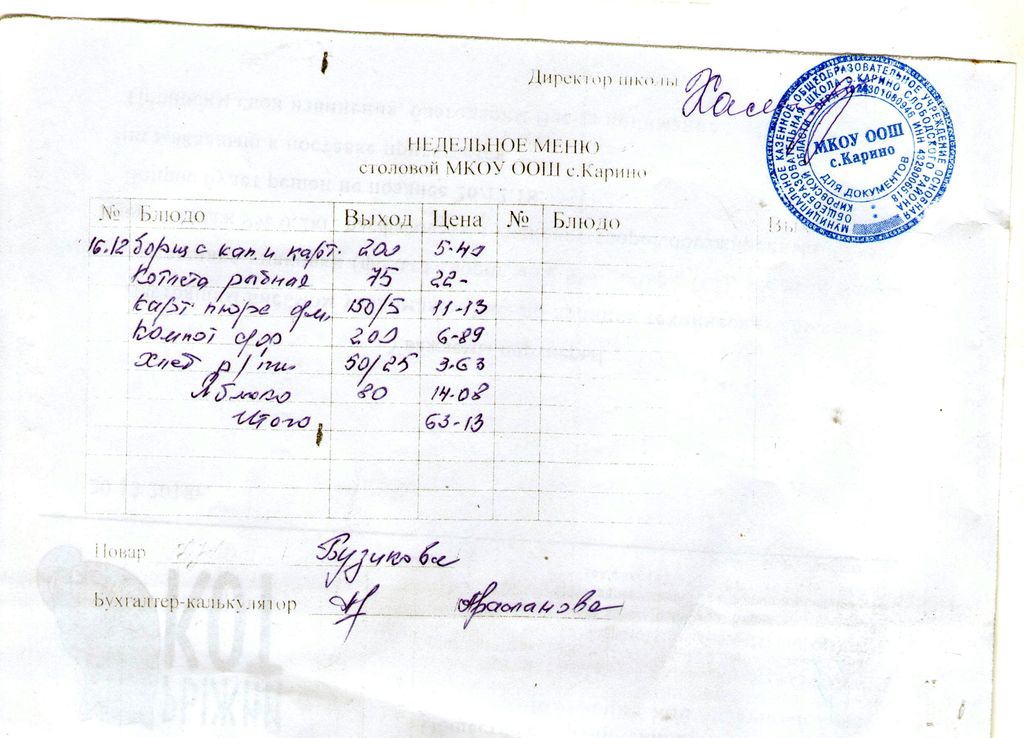 Директор школы
МУНИЦИПАЛЬНОЕ КАЗЕННОЕ ОБЩЕОБРАЗОВАТЕЛЬНОЕ УЧРЕЖДЕНИЕ ОСНОВНАЯ
ОБЩЕОБРАЗОВАТЕЛЬНАЯ ШКОЛА с.КАРИНО СЛОБОДСКОГО РАЙОНА
КИРОВСКОЙ ОБЛАСТИ
ИНН 4329006518
МКОУ ООШ
с.Карино
ДЛЯ ДОКУМЕНТОВ
НЕДЕЛЬНОЕ МЕНЮ
столовой МКОУ ООШ с.Карино
№ Блюдо Выход Цена № Блюдо Вы
16.12 борщ с кап. и карт. 200 5-40
Котлета рыбная 75 22-
карт. пюре 150/5 11-13
Компот 200 6-89
Хлеб р/ 50/25 3-63
Яблоко 80 14-08
Итого 63-13
Повар Бузикова
Бухгалтер-калькулятор Арасланова
20.12.2018г
КОТ
РЫЖИЙ